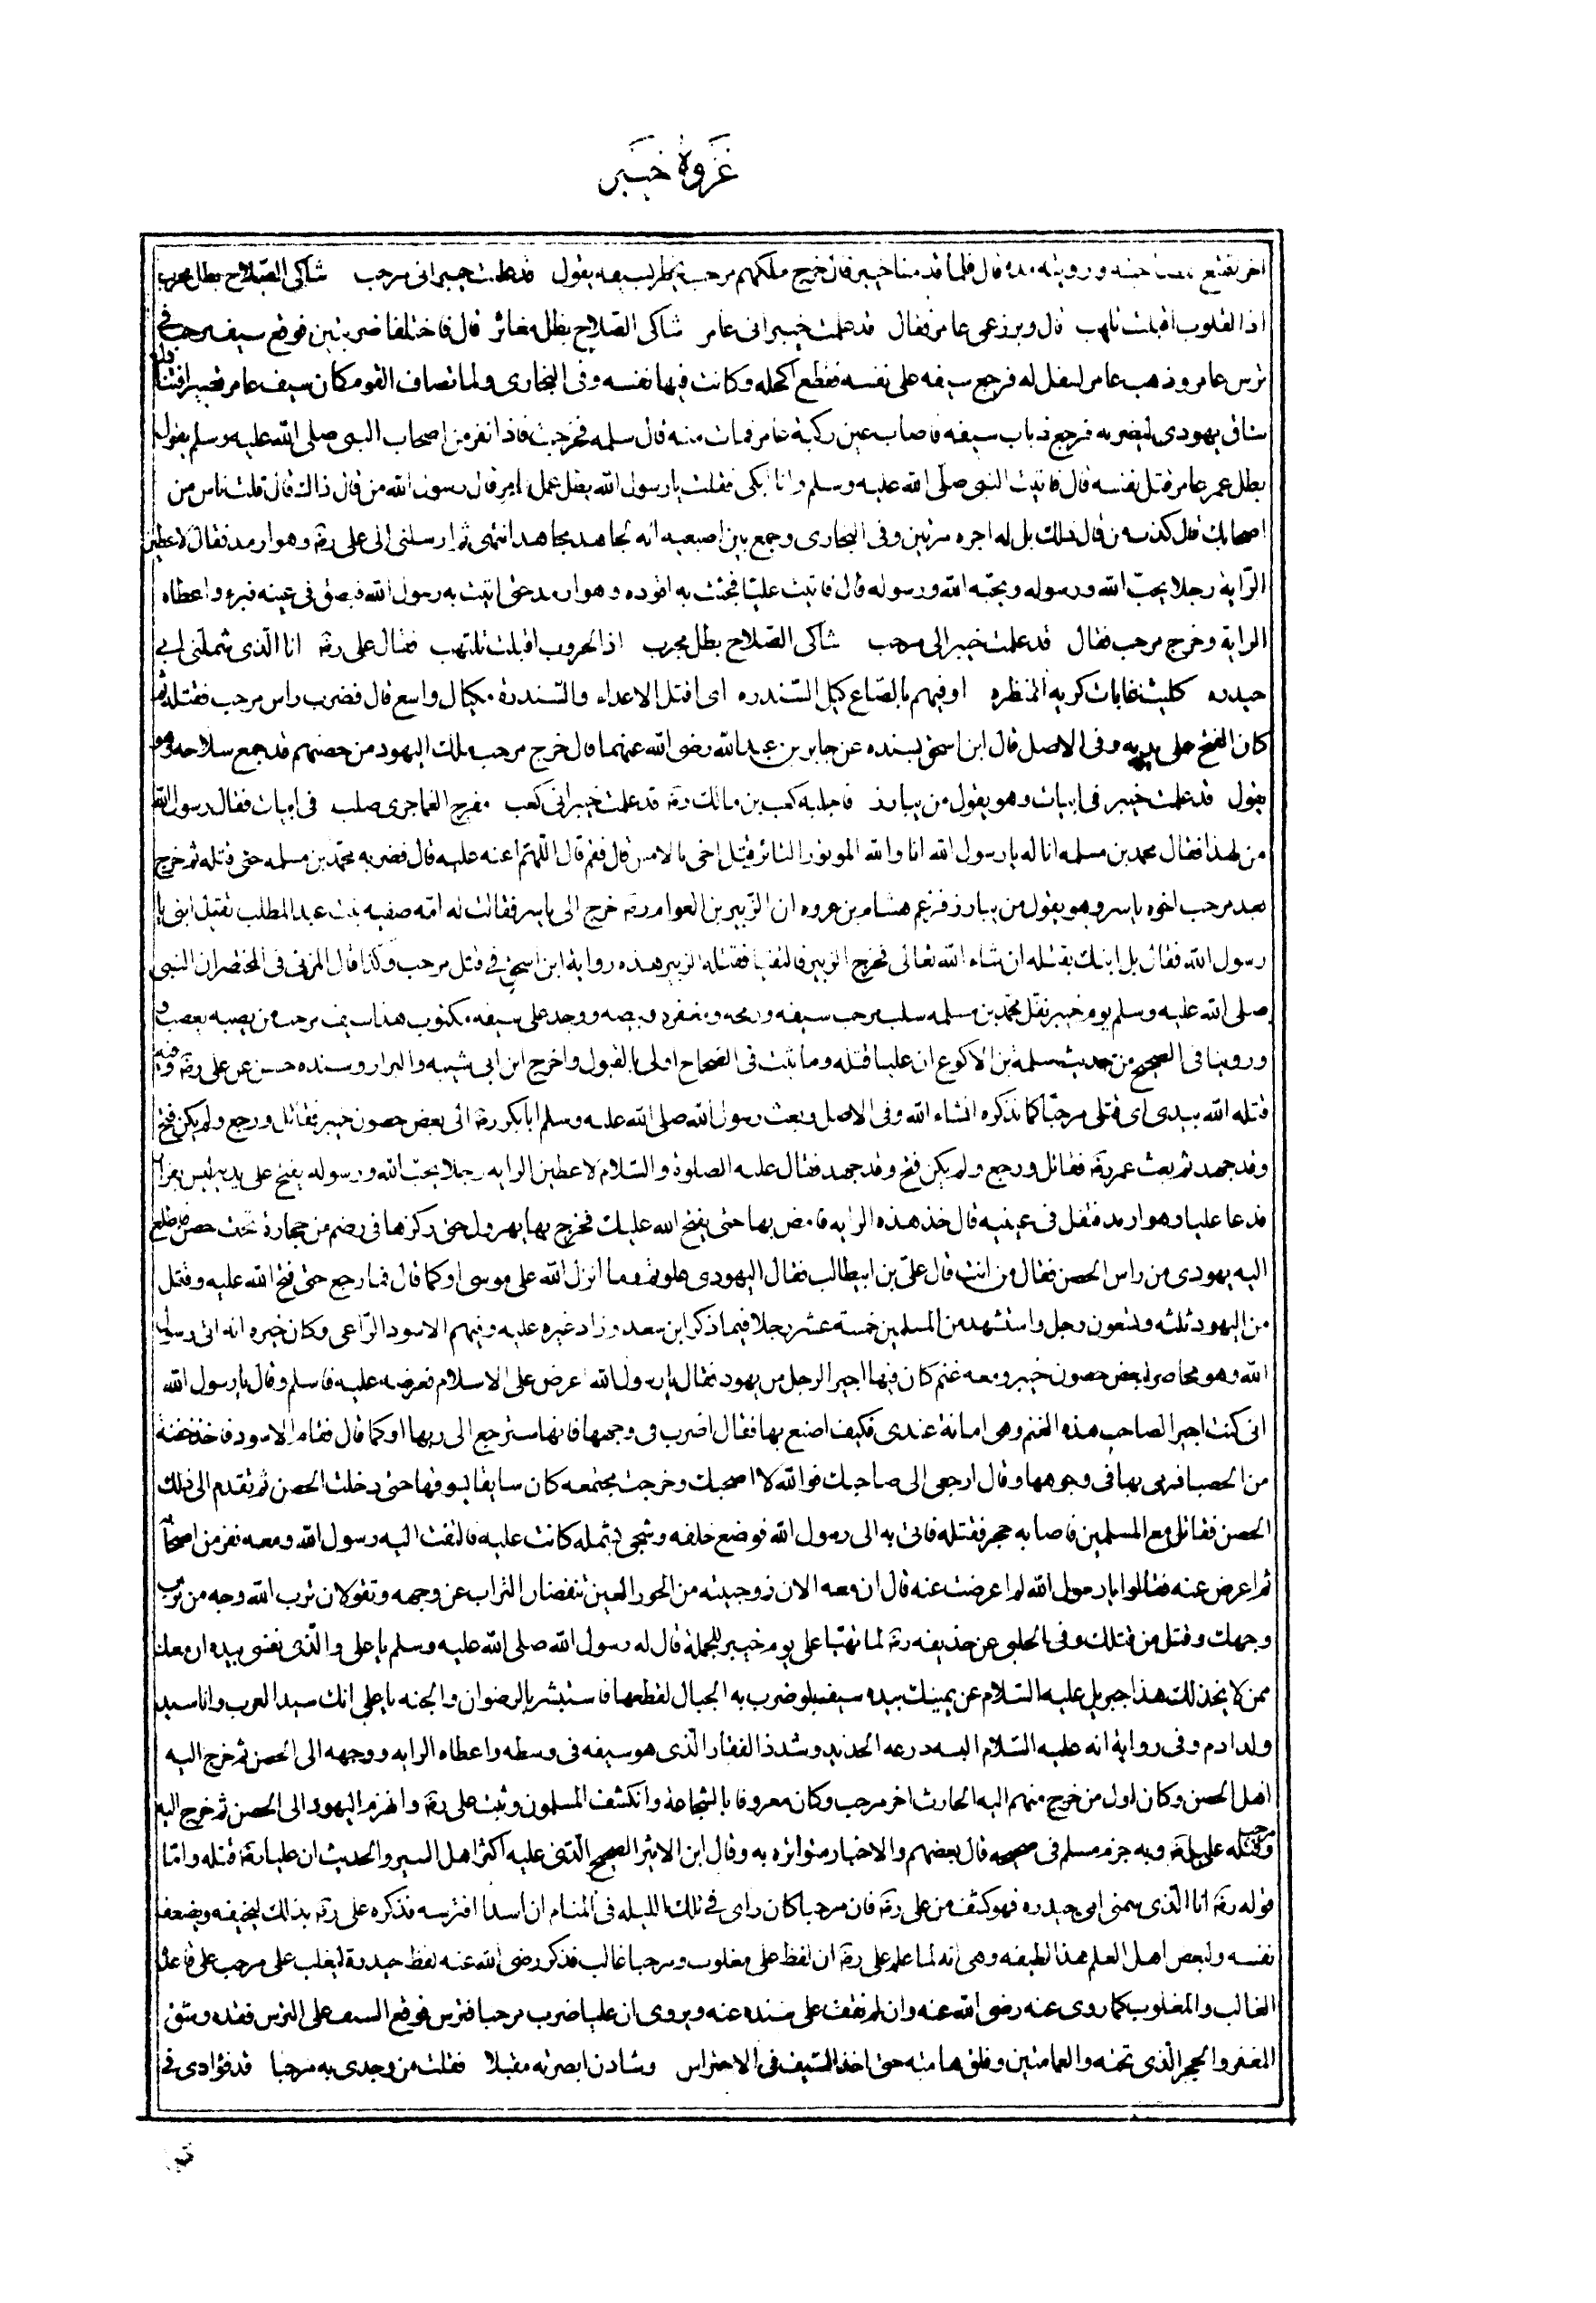 غزوة خيبر
اخر بقتع حبنه وروينه قال فلما قدمنا خيبر قال خرج ملكهم مرحب يخطر بسيفه يقول قد علمت خيبر انى مرحب شاكى السّلاح بطل مجرب
اذا القلوب اقبلت تلهب قال وبرز عمى عامر فقال قد علمت خيبر انى عامر شاكى السّلاح بطل مغائر قال فاختلفا ضربتين فوقع سيف مرحب فى
ترس عامر وذهب عامر ليسفل له فرجع سيفه على نفسه فقطع اكحله وكانت فيها نفسه وفى البخارى ولما تصاف القوم كان سيف عامر قصيرا فتناوله
ساق يهودى ليضربه فرجع ذباب سيفه فاصاب عين ركبة عامر فمات منه قال سلمه فخرجت فاذا نفر من اصحاب النبى صلى الله عليه وسلم يقول
بطل عمر عامر قتل نفسه قال فاتيت النبى صلى الله عليه وسلم وانا ابكى فقلت يا رسول الله بطل عمل عامر قال رسول الله من قال ذالك قال قلت ناس من
اصحابك قال كذب من قال ذلك بل له اجره مرتين وفى البخارى وجمع بين اصبعيه انه لجاهد مجاهد انتهى ثم ارسلنى الى على رضه وهو ارمد فقال لاعطين
الرّاية رجلا يحبّ الله ورسوله ويحبّه الله ورسوله قال فاتيت عليّا فجئت به اقوده وهو ارمد حتى اتيت به رسول الله فبصق فى عينه فبرء واعطاه
الراية وخرج مرحب فقال قد علمت خيبر انى مرحب شاكى السّلاح بطل مجرب اذا الحروب اقبلت تلتهب فقال على رضه انا الّذى سمتنى امى
حيدره كليث غابات كريه المنظره اوفيهم بالصّاع كيل السّندره اى اقتل الاعداء والسّندرة مكيال واسع قال فضرب راس مرحب فقتله ثم
كان الفتح على يديه وفى الاصل قال ابن اسحق بسنده عن جابر بن عبدالله رضى الله عنهما قال خرج مرحب ملك اليهود من حصنهم قد جمع سلاحه وهو
يقول قد علمت خيبر فى ابيات وهو يقول من يبارز فاجابه كعب بن مالك رضه قد علمت خيبر انى كعب مفرج الغما جرى صلب فى ابيات فقال رسول الله
من لهذا فقال محمد بن مسلمه انا له يا رسول الله انا والله الموتور الثائر قتل اخى بالامس قال فقم قال اللّهمّ اعنه عليه قال فضربه محمّد بن مسلمه حتى قتله ثم خرج
بعد مرحب اخوه ياسر وهو يقول من يبارز فزعم هشام بن عروه ان الزّبير بن العوام رضه خرج الى ياسر فقالت له امّه صفيه بنت عبدالمطلب يقتل ابنى يا
رسول الله فقال بل ابنك يقتله ان شاء الله تعالى فخرج الزبير فالتقيا فقتله الزبير هذه رواية ابن اسحق فى قتل مرحب وكذا قال المزنى فى المختصر ان النبى
صلى الله عليه وسلم يوم خيبر نفل محمّد بن مسلمه سلب مرحب سيفه ورمحه ومغفره وبيضه ووجد على سيفه مكتوب هذا سيف مرحب من يصبه يعصب و
وروينا فى الصحيح من حديث سلمة بن الاكوع ان عليا قتله وما ثبت فى الصّحاح اولى بالقبول واخرج ابن ابى شيبه والبزار وسنده حسن عن على رضه وفيه
قتله الله بيدى اى قتلى مرحبّا كما نذكره انشاء الله وفى الاصل وبعث رسول الله صلى الله عليه وسلم ابابكر رضه الى بعض حصون خيبر فقاتل ورجع ولم يكن فتح
وقد جهد ثم بعث عمر رضه فقاتل ورجع ولم يكن فتح وقد جهد فقال عليه الصلوة والسّلام لاعطين الرايه رجلا يحبّ الله ورسوله يفتح على يديه ليس بفرار
فدعا عليا وهو ارمد فتفل فى عينيه قال خذ هذه الرايه فامض بها حتى يفتح الله عليك فخرج بها يهرول حتى ركزها فى رضم من حجارة تحت حصن فاطلع
اليه يهودى من راس الحصن فقال من انت قال علىّ بن ابيطالب فقال اليهودى علوتم وما انزل الله على موسى او كما قال فما رجع حتى فتح الله عليه وقتل
من اليهود ثلثه وتسعون رجل واستشهد من المسلمين خمسة عشر رجلا فيما ذكر ابن سعد وزاد غيره عليه وفيهم الاسود الرّاعى وكان خبره انه اتى رسول
الله وهو محاصر لبعض حصون خيبر ومعه غنم كان فيها اجير الرجل من يهود فقال يا رسول الله اعرض على الاسلام فعرضه عليه فاسلم وقال يا رسول الله
انى كنت اجير الصاحب هذه الغنم وهى امانة عندى فكيف اصنع بها فقال اضرب فى وجهها فانها سترجع الى ربها او كما قال فقام الاسود فاخذ حفنة
من الحصبا فرمى بها فى وجوهها وقال ارجعى الى صاحبك فوالله لا اصحبك وخرجت مجتمعه كان سايقا يسوقها حتى دخلت الحصن ثم تقدم الى ذلك
الحصن فقاتل مع المسلمين فاصابه حجر فقتله فاتى به الى رسول الله فوضع خلفه وسجى بشمله كانت عليه فالتفت اليه رسول الله ومعه نفر من اصحابه
ثم اعرض عنه فقالوا يا رسول الله لم اعرضت عنه قال ان معه الان زوجيته من الحور العين تنفضان التراب عن وجهه وتقولان ترب الله وجه من ترب
وجهك وقتل من قتلك وفى الحلبى عن حذيفه رضه لما تهيّا على يوم خيبر للجملة قال له رسول الله صلى الله عليه وسلم يا على والّذى نفسى بيده ان معك
من لا يخذلك هذا جبريل عليه السّلام عن يمينك بيده سيف لو ضرب به الجبال لقطعها فاستبشر بالرضوان والجنه يا على انك سيد العرب وانا سيد
ولد ادم وفى رواية انه عليه السّلام البسه درعه الحديد وشد ذا الفقار الّذى هو سيفه فى وسطه واعطاه الرايه ووجهه الى الحصن ثم خرج اليه
اهل الحصن وكان اول من خرج منهم اليه الحارث اخر مرحب وكان معروفا بالشجاعة وانكشف المسلمون وثبت على رضه وانهزم اليهود الى الحصن ثم خرج اليه مرحب
وقتله على رضه وبه جزم مسلم فى صحيحه قال بعضهم والاخبار متواتره به وقال ابن الاثير الصحيح الّذى عليه اكثر اهل السير والحديث ان عليا رضه قتله وامّا
قوله رضه انا الّذى سمتنى امى حيدره فهو كشف من على رضه فان مرحبا كان راى فى تلك الليله فى المنام ان اسدا افترسه فذكره على رضه بذالك ليخيفه ويضعف
نفسه ولبعض اهل العلم هذا لطيفه وهى انه لما علم على رضه ان لفظ على مغلوب ومرحبا غالب فذكر رضى الله عنه لفظ حيدرة ليغلب على مرحب على قاعدة
الغالب والمغلوب كما روى عنه رضى الله عنه وان لم نقف على سنده عنه ويروى ان عليا ضرب مرحبا فترس فوقع السيف على الترس فقده وشق
المغفر والحجر الّذى تحته والعمامتين وفلق هامته حتى اخذ السّيف فى الاضراس وشادن ابصرته مقبلا فقلت من وجدى به مرحبا قد فؤادى فى